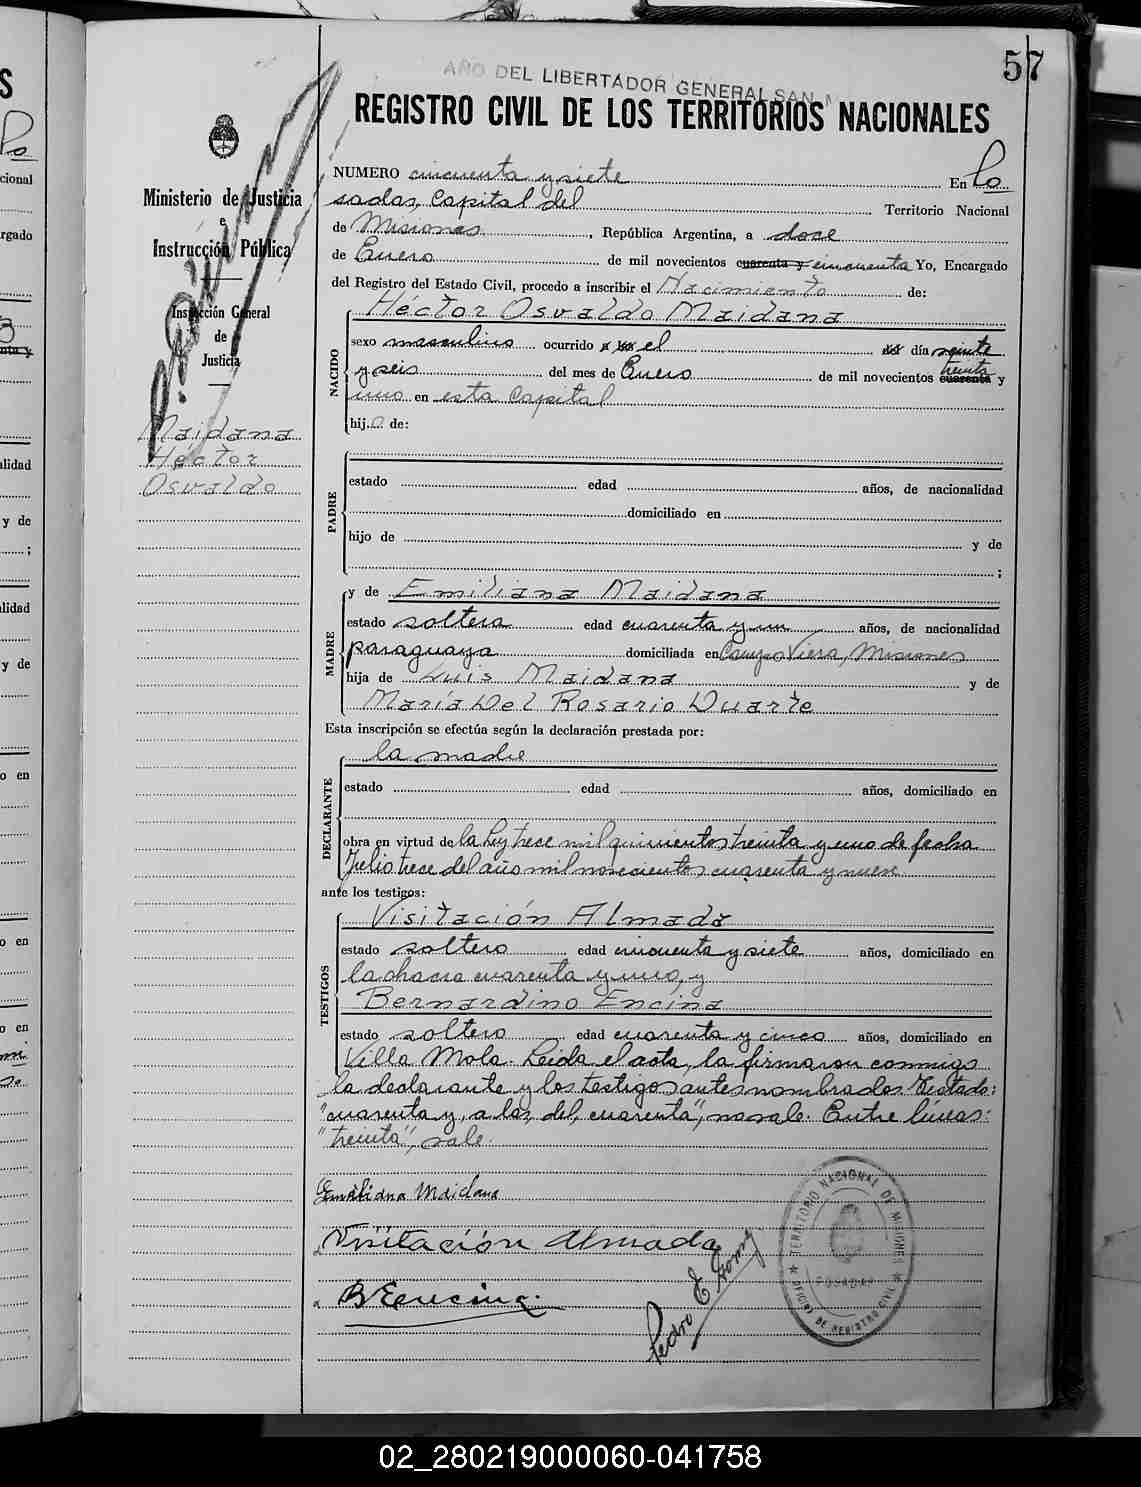 57
AÑO DEL LIBERTADOR GENERAL SAN M
REGISTRO CIVIL DE LOS TERRITORIOS NACIONALES
Ministerio de Justicia
e
Instrucción Pública
Inspección General
de
Justicia
Maidana
Héctor
Osvaldo
NUMERO cincuenta y siete En Po
sadas, Capital del Territorio Nacional
de Misiones, República Argentina, a doce
de Enero de mil novecientos cuarenta y cincuenta Yo, Encargado
del Registro del Estado Civil, procedo a inscribir el Nacimiento de:
NACIDO
Héctor Osvaldo Maidana
sexo masculino ocurrido a las el día veinte
treinta
y seis del mes de Enero de mil novecientos cuarenta y
uno en esta Capital
hijo de:
PADRE
estado edad años, de nacionalidad
domiciliado en
hijo de y de
;
MADRE
y de Emiliana Maidana
estado soltera edad cuarenta y un años, de nacionalidad
paraguaya domiciliada en Viera, Misiones
hija de Luis Maidana y de
María Del Rosario Duarte
Esta inscripción se efectúa según la declaración prestada por:
DECLARANTE
la madre
estado edad años, domiciliado en
obra en virtud de la Ley trece mil quinientos treinta y uno de fecha
Julio trece del año mil novecientos cuarenta y nueve
ante los testigos:
TESTIGOS
Visitación Almada
estado soltero edad cincuenta y siete años, domiciliado en
la chacra cuarenta y uno, y
Bernardino Encina
estado soltero edad cuarenta y cinco años, domiciliado en
Villa Mola. Leida el acta, la firmaron conmigo
la declarante y los testigos antes nombrados. Testado:
"cuarenta y, a las, del, cuarenta", no vale. Entre líneas:
"treinta", vale.
Emiliana Maidana
Visitación Almada
B Encina.
Pedro E Gomez
TERRITORIO NACIONAL DE MISIONES
POSADAS
OFICINA DE REGISTRO CIVIL
S
Po
cional
rgado
3
nta y
lidad
y de
;
lidad
y de
o en
o en
o en
02_280219000060-041758